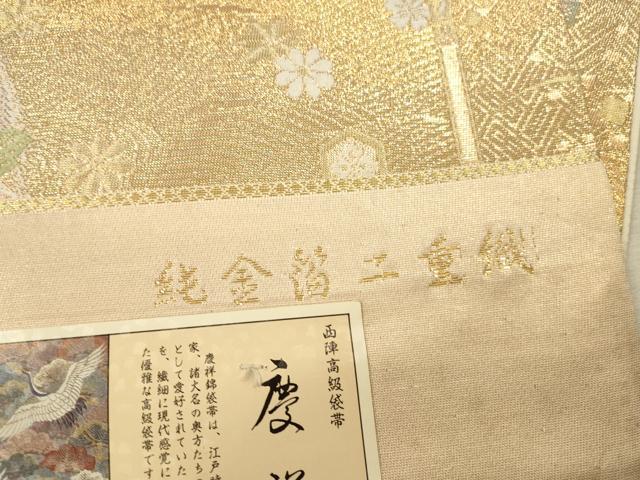 純金箔二重織
西陣高級袋帯
慶祥
慶祥錦袋帯は、江戸時
家、諸大名の奥方たち
として愛好されていた
を、繊細に現代感覚に
た優雅な高級袋帯です